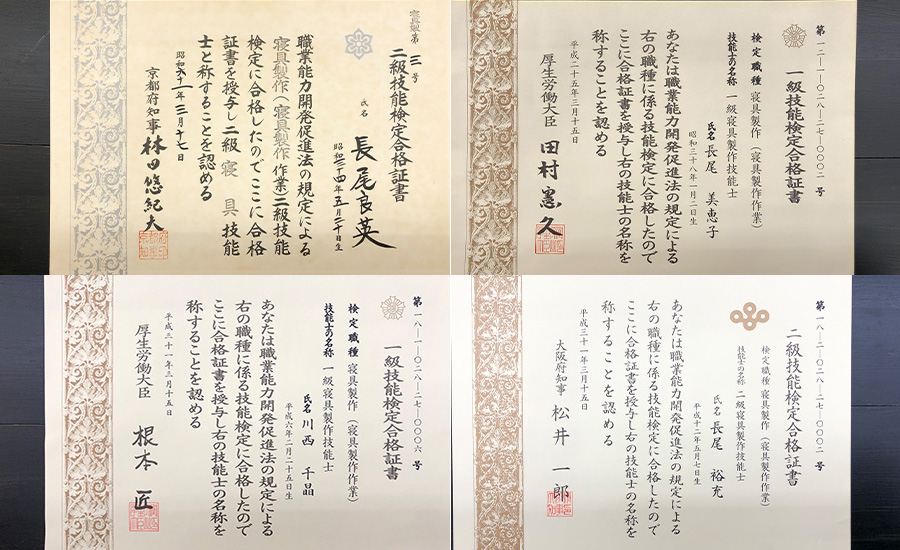 寝具製第三号
二級技能検定合格証書
氏名 長尾良英
昭和三十四年五月二十日生
職業能力開発促進法の規定による
寝具製作(寝具製作作業)二級技能
検定に合格したのでここに合格
証書を授与し二級寝具技能
士と称することを認める
昭和六十一年三月十七日
京都府知事 林田悠紀夫
第一二―一―〇二八―二七―〇〇〇二号
一級技能検定合格証書
検定職種 寝具製作(寝具製作作業)
技能士の名称 一級寝具製作技能士
氏名 長尾 美恵子
昭和三十八年一月二日生
あなたは職業能力開発促進法の規定による
右の職種に係る技能検定に合格したので
ここに合格証書を授与し右の技能士の名称を
称することを認める
平成二十五年三月十五日
厚生労働大臣 田村憲久
第一八―一―〇二八―二七―〇〇〇六号
一級技能検定合格証書
検定職種 寝具製作(寝具製作作業)
技能士の名称 一級寝具製作技能士
氏名 川西 千晶
平成六年二月二十五日生
あなたは職業能力開発促進法の規定による
右の職種に係る技能検定に合格したので
ここに合格証書を授与し右の技能士の名称を
称することを認める
平成三十一年三月十五日
厚生労働大臣 根本 匠
第一八―二―〇二八―二七―〇〇〇二号
二級技能検定合格証書
検定職種 寝具製作(寝具製作作業)
技能士の名称 二級寝具製作技能士
氏名 長尾 裕充
平成十二年五月七日生
あなたは職業能力開発促進法の規定による
右の職種に係る技能検定に合格したので
ここに合格証書を授与し右の技能士の名称を
称することを認める
平成三十一年三月十五日
大阪府知事 松井 一郎